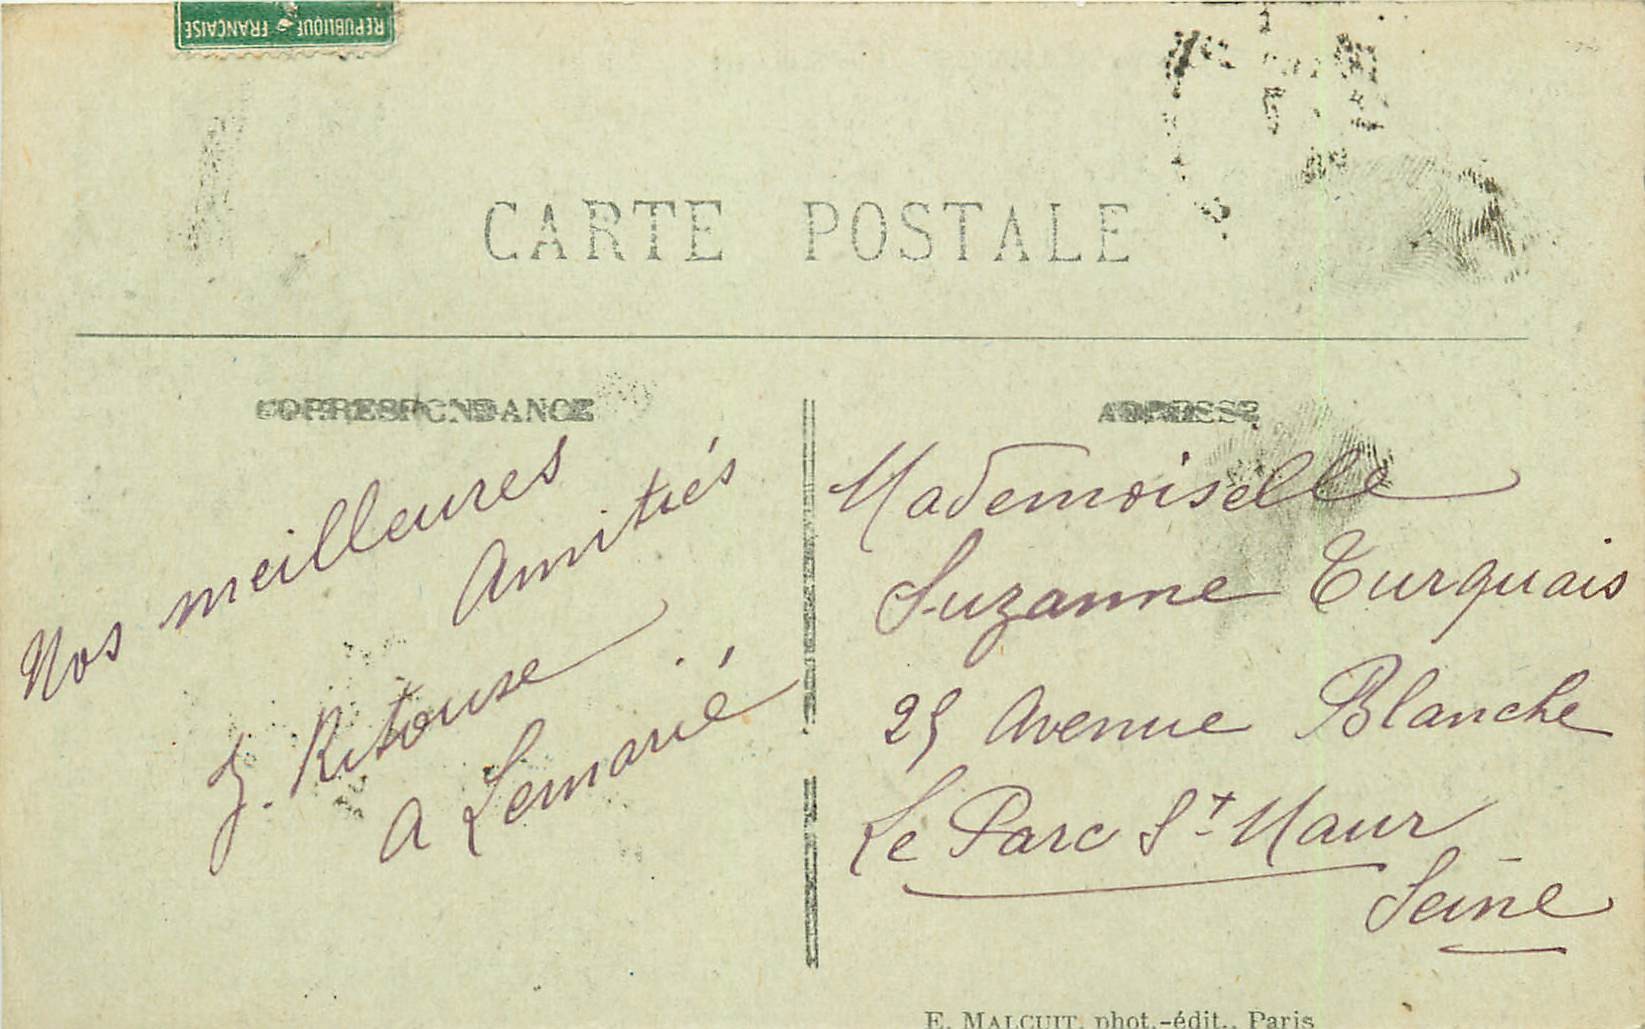 REPUBLIQUE FRANÇAISE
CARTE POSTALE
CORRESPONDANCE
Nos meilleures
Amitiés
A Lemarié
ADRESSE
Mademoiselle
Suzanne Turquais
25 Avenue Blanche
Le Parc St Maur
Seine
E. MALCUIT, phot.-édit., Paris